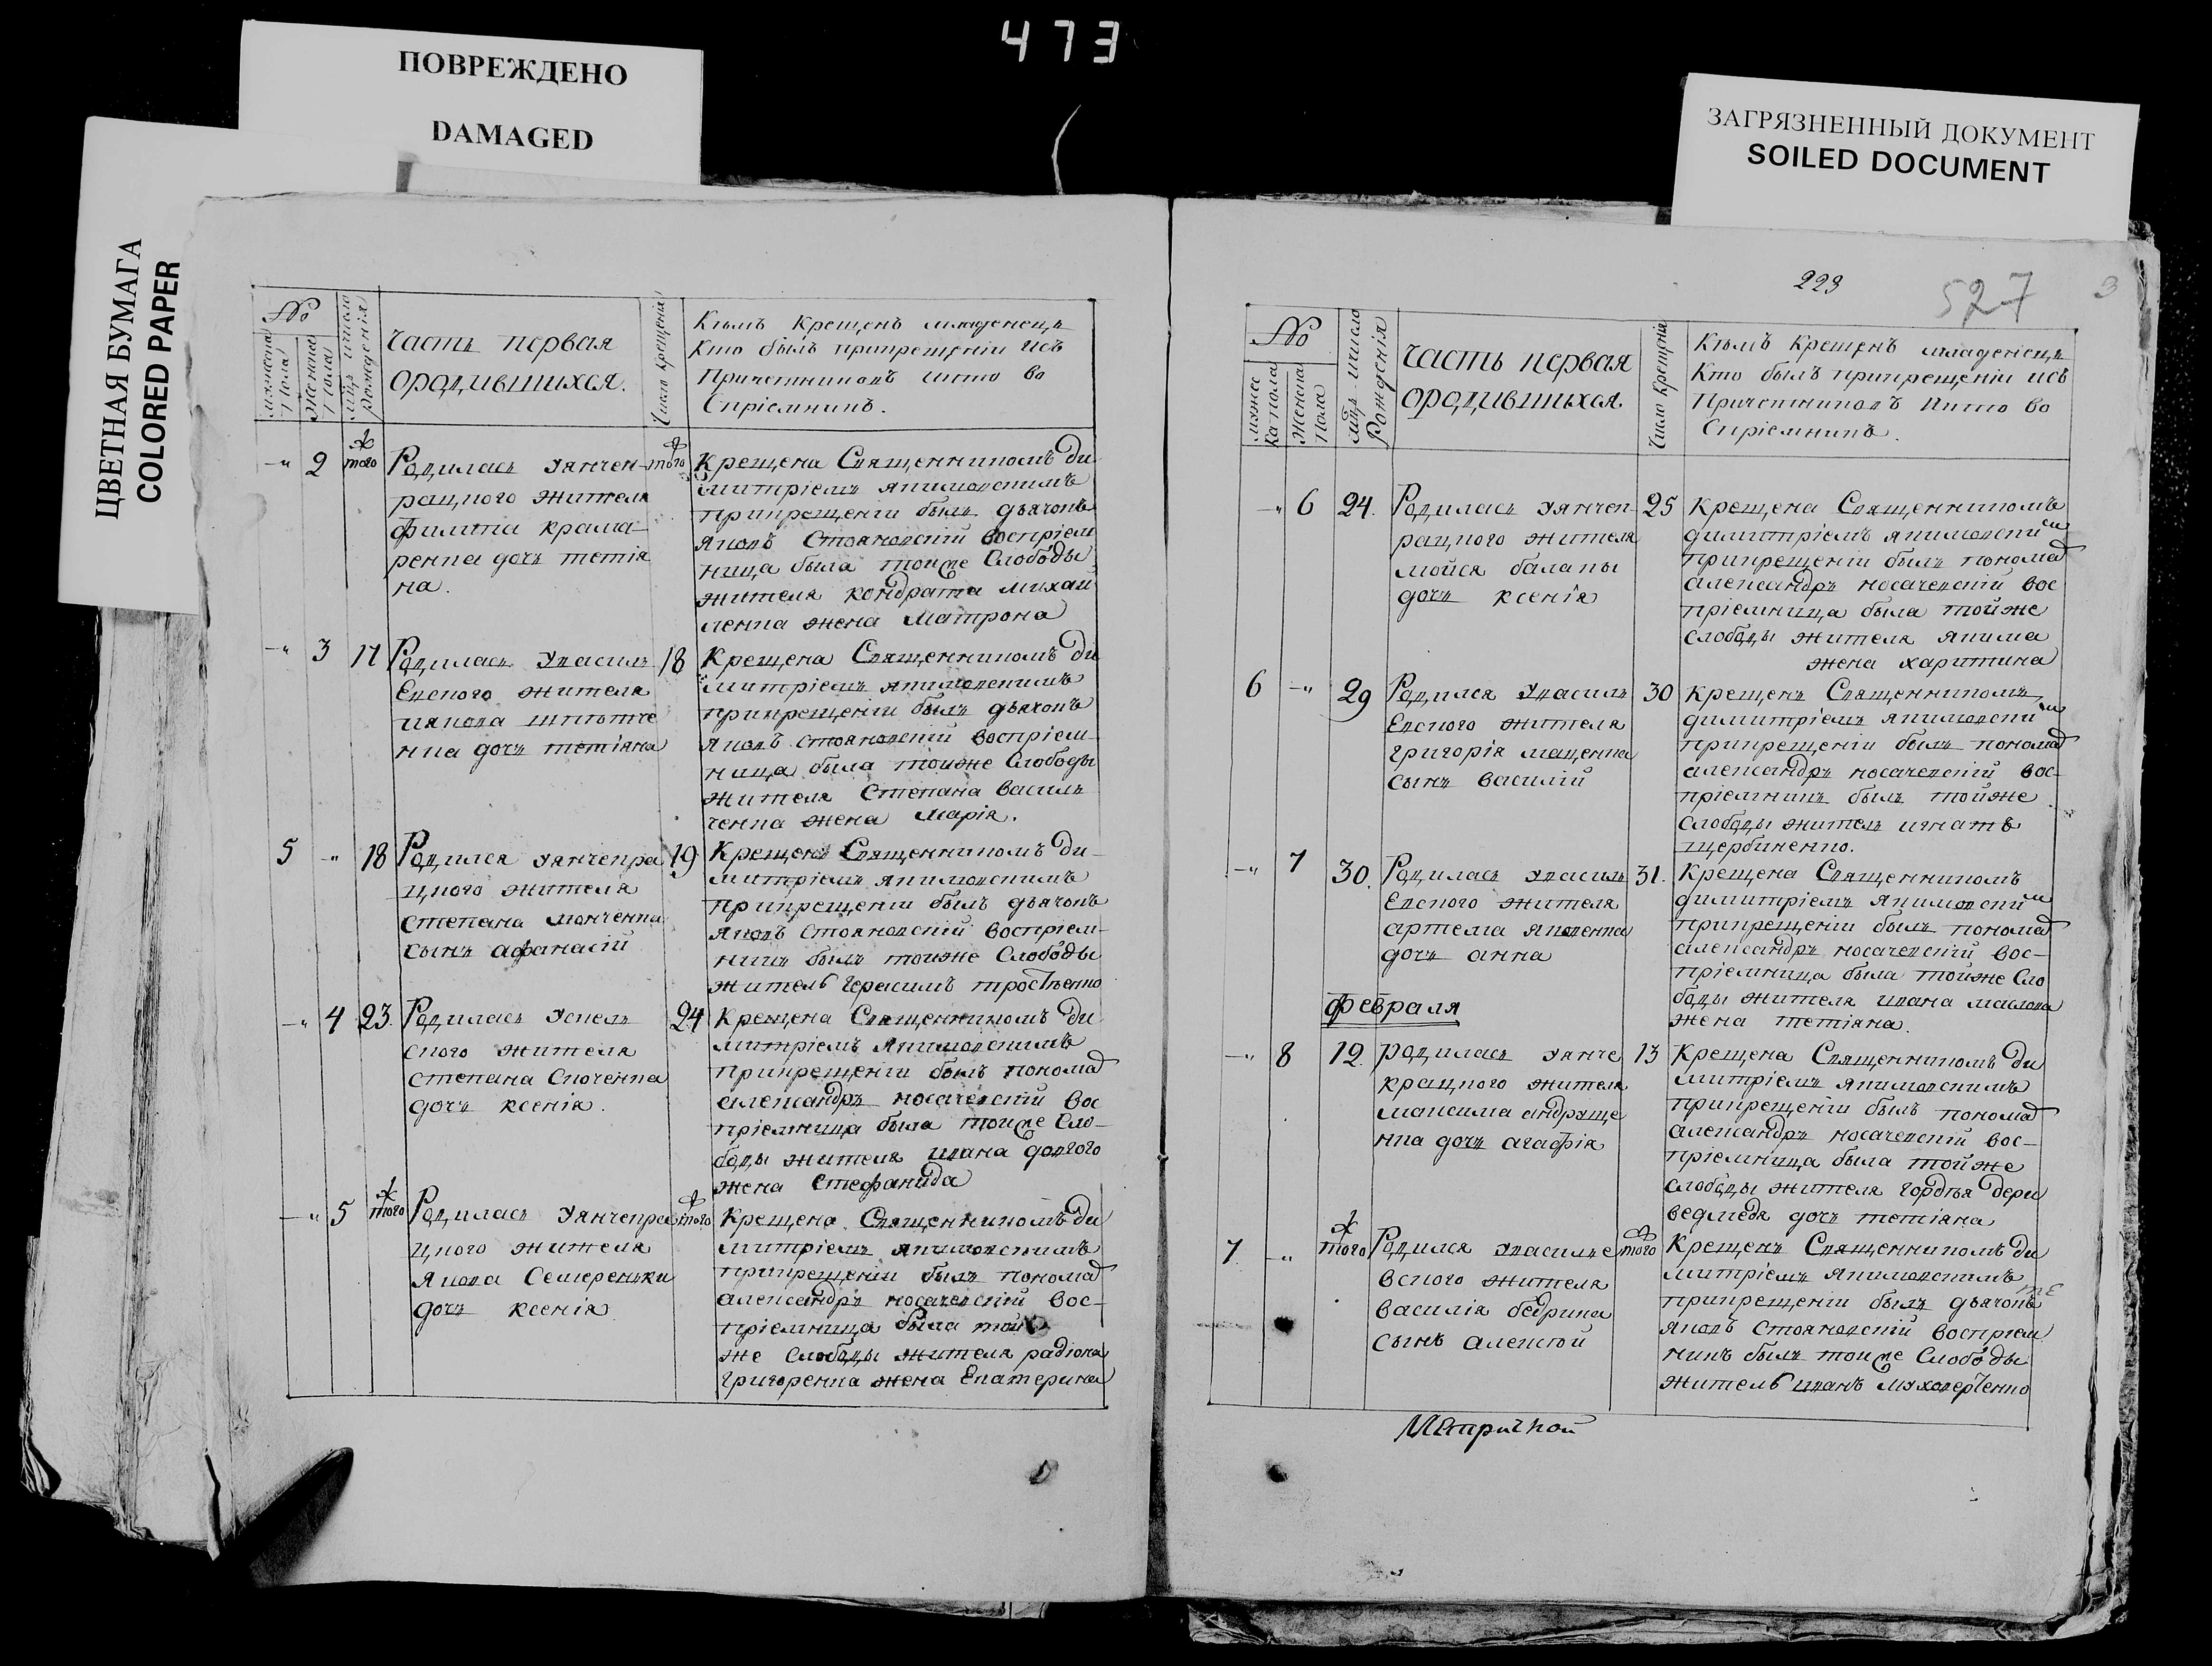 473
ПОВРЕЖДЕНО
DAMAGED
ЦВЕТНАЯ БУМАГА
COLORED PAPER
ЗАГРЯЗНЕННЫЙ ДОКУМЕНТ
SOILED DOCUMENT
№
мужеска пола
Женска пола
мцъ ичисло рожденія
Часть первая
ородившихся.
Число крещенія
Кѣмъ Крещенъ младенецъ
Кто былъ прикрещеніи исъ
Причетниковъ икто во
Спріемникъ.
-„ 2 того Родилась уянчек-
рацкого жителя
филипа крама-
ренка дочь тетія
на.
того Крещена Священникомъ ди
митріемъ якимовскимъ
прикрещеніи былъ дьячокъ
яковъ Стояновскій воспріем
ница была тойже Слободы
жителя кондрата михай
ленка жена Матрона
-„ 3 17 Родилась увасиль
Евского жителя
иякова шпотиче
нка дочь тетіяна
18 Крещена Священникомъ ди
митріемъ якимовскимъ
прикрещеніи былъ дьячокъ
яковъ стояновскій воспріем-
ница была тойже Слободы
жителя Степана василь
ченка жена Марія.
5 -„ 18 Родился уянчекра
цкого жителя
степана момченка
сынъ афанасій
19 Крещенъ Священникомъ ди-
митріемъ якимовскимъ
прикрещеніи былъ дьячокъ
яковъ стояновскій воспріем-
никъ былъ тойже Слободы
житель герасимъ тростенко
-„ 4 23. Родилась
ского жителя
степана Скоченка
дочь ксенія.
24 Крещена Священникомъ ди
митріемъ Якимовскимъ
прикрещеніи былъ понома
александръ носачевскій вос
пріемница была тойже Сло-
боды жителя ивана долгого
жена Стефанида
-„ 5 того Родилась уянчекра
цкого жителя
Якова Семеренки
дочь ксенія
того Крещена Священникомъ ди
митріемъ якимовскимъ
прикрещеніи былъ понома
александръ носачевскій вос-
пріемница была той
же Слободы жителя радіона
григоренка жена Екатерина
223
527
3
№
мужес ка пола
Женска пола
мцъ ичисло Рожденія
Часть первая
ородившихся.
Число Крещенія
Кѣмъ Крещенъ младенецъ
Кто былъ прикрещеніи исъ
Причетниковъ Икто во
Спріемникъ.
-„ 6 24. Родилась уянчек-
рацкого жителя
мойся балаты
дочь ксенія
25 крещена Священникомъ
димитріемъ якимовски
прикрещеніи былъ понома
александръ носачевскій вос
пріемница была тойже
слободы жителя якима
жена харитина
6 -„ 29 Родился увасиль
Евского жителя
григорія маценка
сынъ василій
30 крещенъ Священникомъ
димитріемъ якимовски
прикрещеніи былъ понома
александръ носачевскій вос-
пріемникъ былъ тойже
слободы житель игнатъ
щербиненко.
-„ 7 30. Родилась увасиль
Евского жителя
артема яковенка
дочь анна
31. Крещена Священникомъ
димитріемъ якимовски
прикрещеніи былъ понома
александръ носачевскій вос-
пріемница была тойже Сло
боды жителя ивана маслова
жена тетіяна.
февраля
-„ 8 12. родилась уянче
крацкого жителя
максима андруще
нка дочь агафія
13 Крещена Священникомъ ди
митріемъ якимовскимъ
прикрещеніи былъ понома
александръ носачевскій вос-
пріемница была тойже
слободы жителя гордѣя дери
ведмедя дочь тетіяна
7 -„ того Родился увасилье
вского жителя
василія бедрина
сынъ алексій
того Крещенъ Священникомъ ди
митріемъ якимовскимъ
прикрещеніи былъ дьячокъ
яковъ Стояновскій воспріем
никъ былъ тойже Слободы
житель иванъ муховерченко